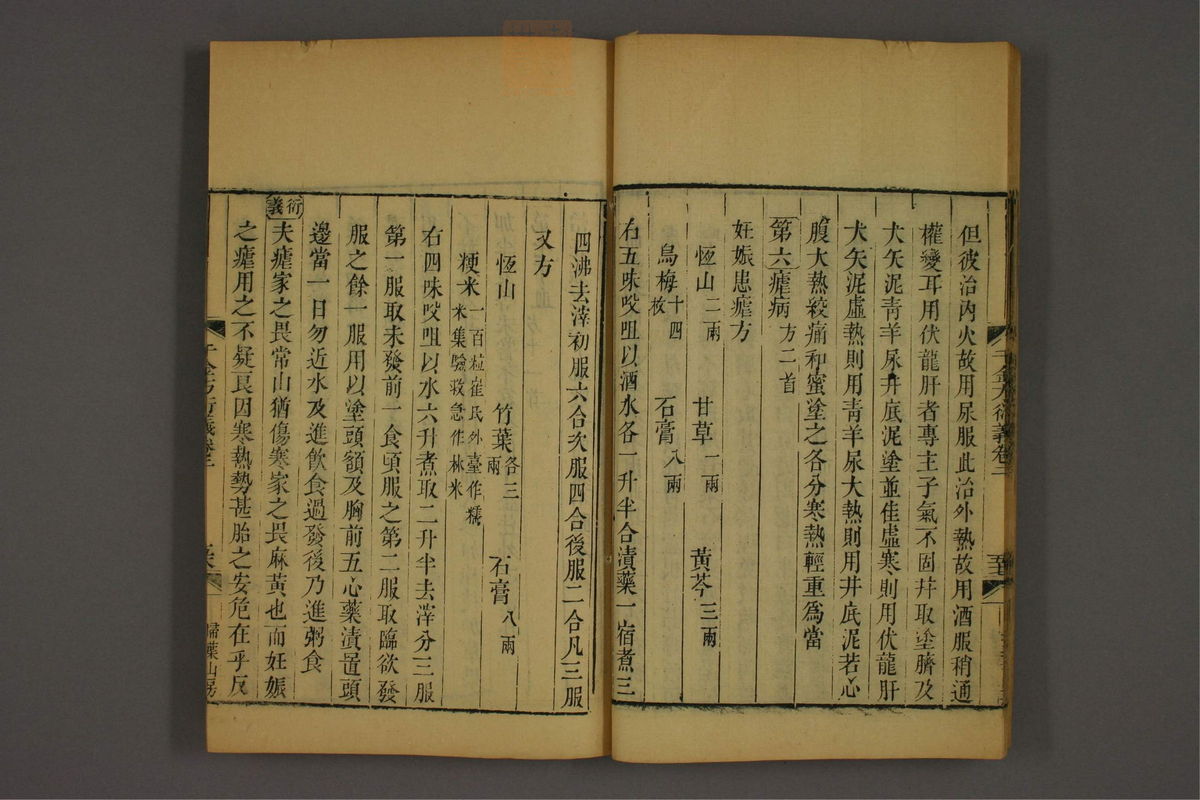 但彼治内火故用尿服此治外熱故用酒服稍通
權變耳用伏龍肝者專主子氣不固井取塗臍及
犬矢泥青羊尿井底泥塗並佳虛寒則用伏龍肝
犬矢泥虛熱則用青羊尿大熱則用井底泥若心
腹大熱絞痛和蜜塗之各分寒熱輕重爲當
第六瘧病 方二首
妊娠患瘧方
恆山二兩 甘草一兩 黃芩三兩
烏梅十四枚 石膏八兩
右五味㕮咀以酒水各一升半合漬藥一宿煮三
四沸去滓初服六合次服四合後服二合凡三服
又方
恆山 竹葉各三兩 石膏八兩
粳米一百粒崔氏外臺作糯米集驗救急作秫米
右四味㕮咀以水六升煮取二升半去滓分三服
第一服取未發前一食頃服之第二服取臨欲發
服之餘一服用以塗頭額及胸前五心藥漬置頭
邊當一日勿近水及進飲食過發後乃進粥食
衍義
夫瘧家之畏常山猶傷寒家之畏麻黃也而妊娠
之瘧用之不疑良因寒熱勢甚胎之安危在乎反
千金方衍義卷二
千金方衍義卷二
掃葉山房